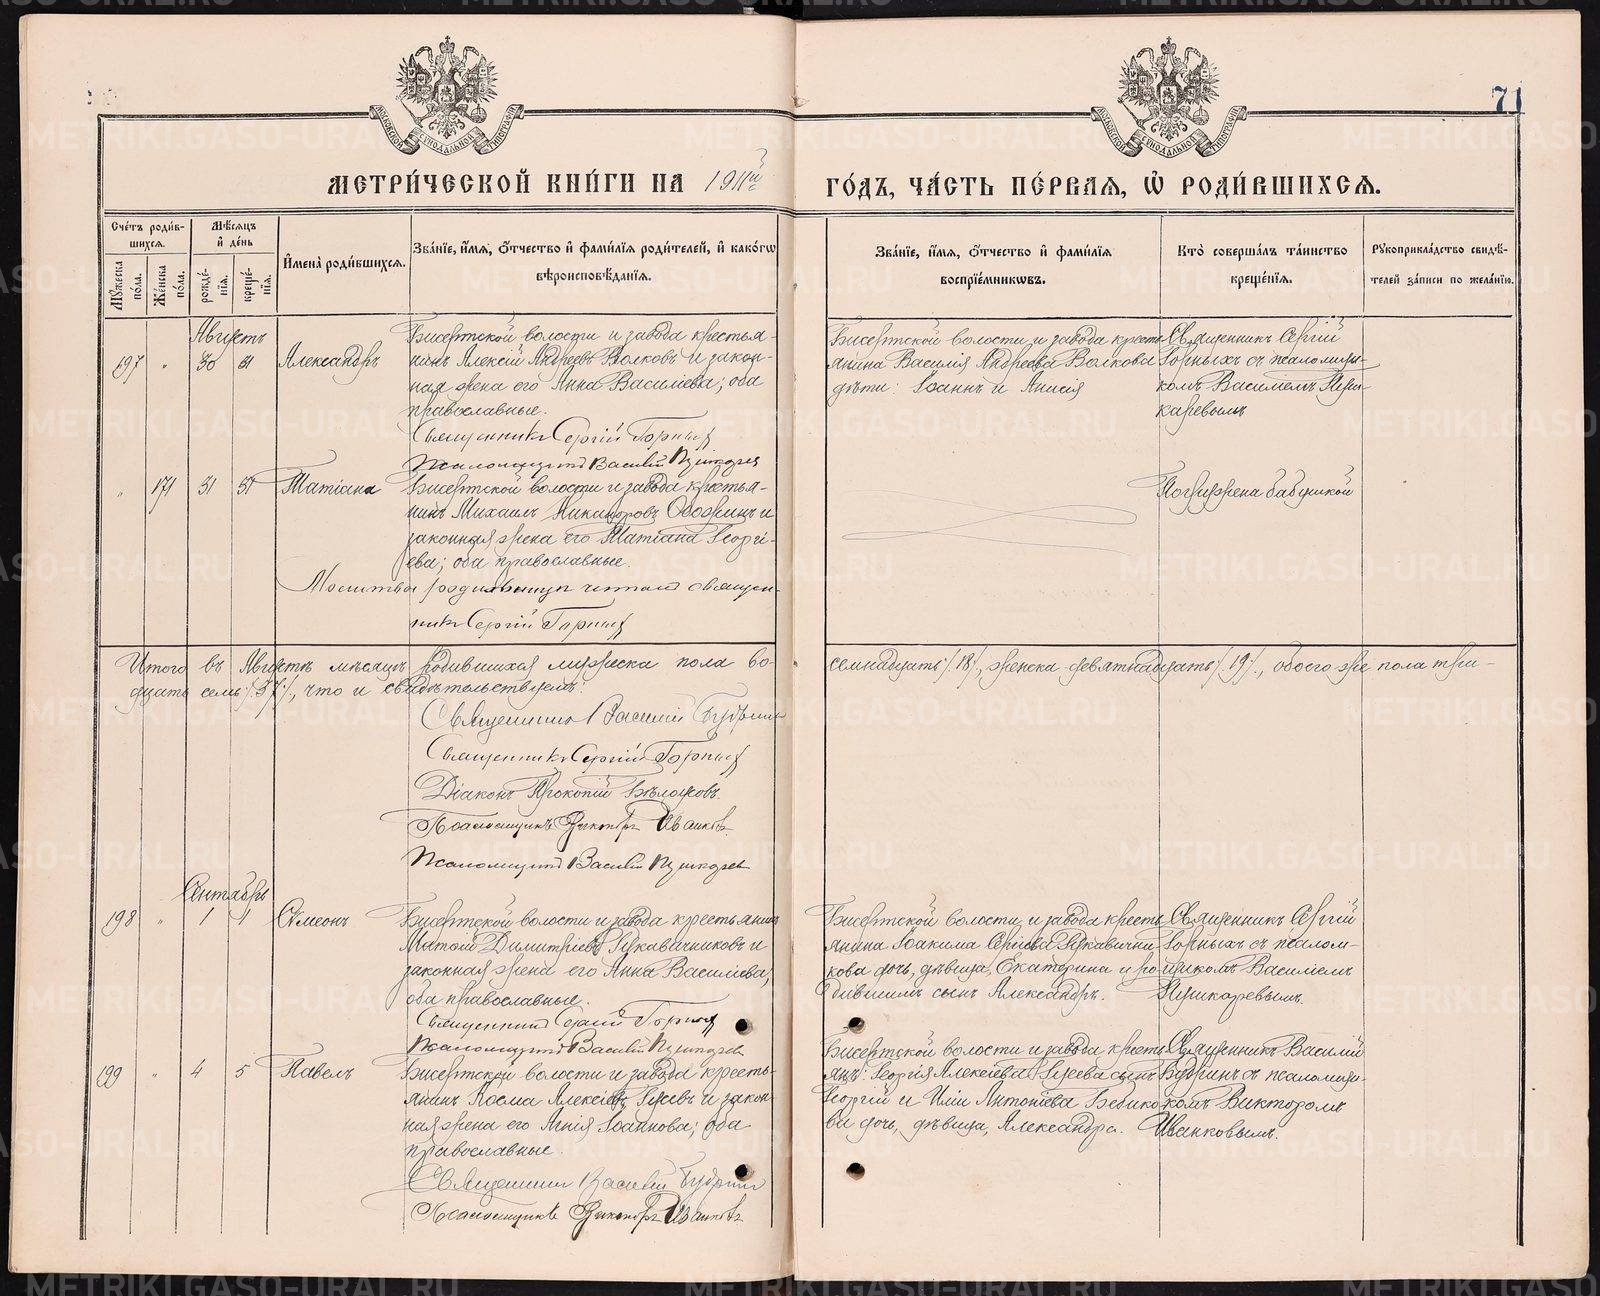 71
МЕТРИ́ЧЕСКОЙ КНИ́ГИ НА 1911й ГО́ДЪ, ЧА́СТЬ ПЕ́РВАЯ, Ѽ РОДИ́ВШИХСЯ.
Сче́тъ роди́вшихся.
Мѣ́сяцъ и́ де́нь
Мꙋ́жеска по́ла.
Же́нска по́ла.
рожде́нїя.
креще́нїя.
И҆мена̀ роди́вшихся.
Зва́нїе, и҆́мѧ, ѻ҆́тчество и҆ фами́лїѧ роди́телей, и҆ како́гѡ вѣроисповѣ́данїя.
Зва́нїе, и҆́мѧ, ѻ҆́тчество и҆ фами́лїѧ воспрїе́мникѡвъ.
Кто̀ соверша́лъ та́инство креще́нїя.
Рꙋкоприкла́дство свидѣ́телей за́писи по жела́нїю.
Августъ
197 " 30 31 Александръ
Бисертской волости и завода крестья-
нинъ Алексій Андреевъ Волковъ и закон-
ная жена его Анна Василіева; оба
православные.
Священникъ Сергій Горныхъ
Псаломщикъ Василій Пушкаревъ
Бисертской волости и завода кресть-
янина Василія Андреева Волкова
дѣти: Іоаннъ и Анисія
Священникъ Сергій
Горныхъ съ псаломщи-
комъ Василіемъ Пуш-
каревымъ
" 171 31 31 Татіана
Бисертской волости и завода крестья-
нинъ Михаилъ Никаноровъ и
законная жена его Татіана Георгі-
ева; оба православные.
Молитвы родильницѣ читалъ священ-
никъ Сергій Горныхъ
Погружена бабушкой
Итого въ Августѣ мѣсяцѣ родившихся мужеска пола во-
семнадцать /18/, женска девятнадцать /19/, обоего же пола три-
дцать семь /37/, что и свидѣтельствуемъ:
Священникъ Василій Бубринъ
Священникъ Сергій Горныхъ
Діаконъ Прокопій
Псаломщикъ Викторъ Иванковъ
Псаломщикъ Василій Пушкаревъ
Сентябрь
198 " 1 1 Симеонъ
Бисертской волости и завода крестьянинъ
Матѳій Димитріевъ Рукавичниковъ и
законная жена его Анна Василіева,
оба православные.
Священникъ Сергій Горныхъ
Псаломщикъ Василій Пушкаревъ
Бисертской волости и завода кресть-
янина Іоакима Сергіева Рукавични-
кова дочь, дѣвица, Екатерина и ро-
дившимъ сынъ Александръ.
Священникъ Сергій
Горныхъ съ псалом-
щикомъ Василіемъ
Пушкаревымъ.
199 " 4 5 Павелъ
Бисертской волости и завода кресть-
янинъ Косма Алексіевъ и закон-
ная жена его Агнія Іоаннова; оба
православные.
Священникъ Василій Бубринъ
Псаломщикъ Викторъ Иванковъ
Бисертской волости и завода кресть-
янъ: Георгія Алексіева сынъ
Георгій и Иліи Антоніева
ва дочь, дѣвица, Александра.
Священникъ Василій
Бубринъ съ псаломщи-
комъ Викторомъ
Иванковымъ.